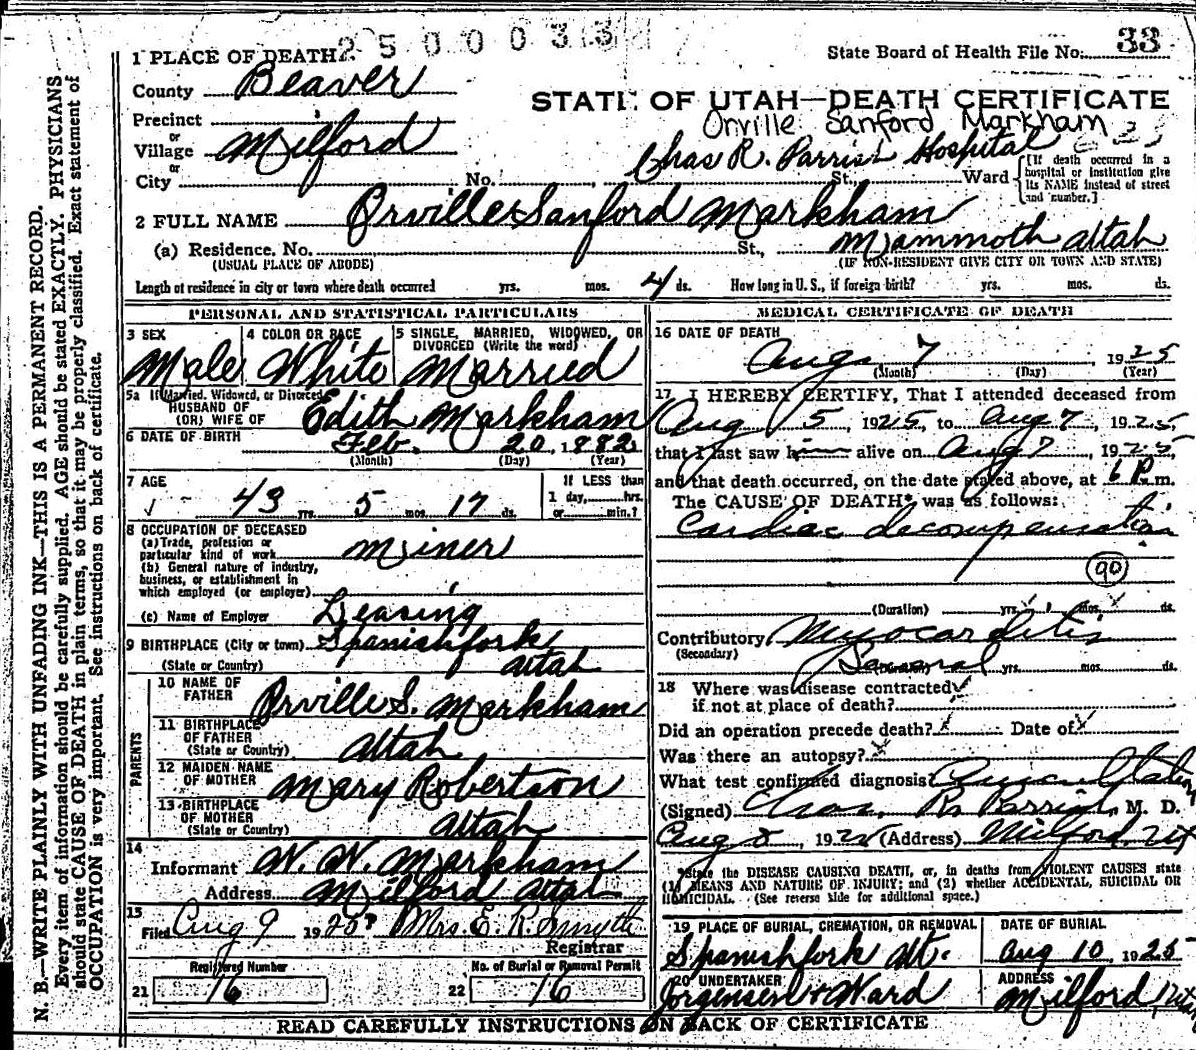 2500033
State Board of Health File No. 33
1 PLACE OF DEATH
County Beaver
STATE OF UTAH—DEATH CERTIFICATE
Precinct
Orville Sanford Markham
or
Village Milford
Chas R. Parrish Hospital
or
City No. St., Ward [If death occurred in a hospital or institution give its NAME instead of street and number.]
2 FULL NAME Orville Sanford Markham
(a) Residence. No. St., Mammoth Utah
(USUAL PLACE OF ABODE) (IF NON-RESIDENT GIVE CITY OR TOWN AND STATE)
Length of residence in city or town where death occurred yrs. mos. 4 ds. How long in U. S., if foreign birth? yrs. mos. ds.
PERSONAL AND STATISTICAL PARTICULARS
3 SEX
Male
4 COLOR OR RACE
White
5 SINGLE, MARRIED, WIDOWED, OR
DIVORCED (Write the word)
Married
5a If Married, Widowed, or Divorced
HUSBAND OF
(OR) WIFE OF Edith Markham
6 DATE OF BIRTH Feb. 20, 1882
(Month) (Day) (Year)
7 AGE
43 yrs. 5 mos. 17 ds.
If LESS than
1 day, hrs.
or min.?
8 OCCUPATION OF DECEASED
(a) Trade, profession or
particular kind of work Miner
(b) General nature of industry,
business, or establishment in
which employed (or employer)
(c) Name of Employer Leasing
9 BIRTHPLACE (City or town) Spanishfork
(State or Country) Utah
PARENTS
10 NAME OF
FATHER Orville S. Markham
11 BIRTHPLACE
OF FATHER
(State or Country) Utah
12 MAIDEN NAME
OF MOTHER Mary Robertson
13 BIRTHPLACE
OF MOTHER
(State or Country) Utah
14
Informant W. W. Markham
Address Milford Utah
15
Filed Aug 9 1925 Mrs. E. R. Smyth
Registrar
Registered Number
21 16
No. of Burial or Removal Permit
22 16
MEDICAL CERTIFICATE OF DEATH
16 DATE OF DEATH
Aug 7 1925
(Month) (Day) (Year)
17 I HEREBY CERTIFY, That I attended deceased from
Aug 5, 1925, to Aug 7, 1925,
that I last saw h alive on Aug 7, 1925,
and that death occurred, on the date stated above, at 6 P. m.
The CAUSE OF DEATH* was as follows:
Cardiac decompensation
90
(Duration) yrs. mos. ds.
Contributory Myocarditis
(Secondary)
(Duration) yrs. mos. ds.
18 Where was disease contracted
if not at place of death?
Did an operation precede death? x Date of x
Was there an autopsy? x
What test confirmed diagnosis
(Signed) Chas. R. Parrish, M. D.
Aug 8, 1925 (Address) Milford, Ut
*State the DISEASE CAUSING DEATH, or, in deaths from VIOLENT CAUSES state
(1) MEANS AND NATURE OF INJURY; and (2) whether ACCIDENTAL, SUICIDAL OR
HOMICIDAL. (See reverse side for additional space.)
19 PLACE OF BURIAL, CREMATION, OR REMOVAL
Spanishfork Ut.
DATE OF BURIAL
Aug 10, 1925
20 UNDERTAKER
Jorgensen & Ward
ADDRESS
Milford, Utah
READ CAREFULLY INSTRUCTIONS ON BACK OF CERTIFICATE
N. B.—WRITE PLAINLY WITH UNFADING INK—THIS IS A PERMANENT RECORD.
Every item of information should be carefully supplied. AGE should be stated EXACTLY. PHYSICIANS
should state CAUSE OF DEATH in plain terms, so that it may be properly classified. Exact statement of
OCCUPATION is very important. See instructions on back of certificate.